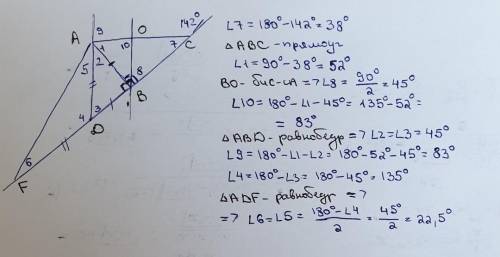 A
9
O
142°
1
10
7
C
2
5
8
B
3
4
D
6
F
∠7 = 180°-142° = 38°
△ABC - прямоуг
∠1 = 90°-38° = 52°
BO - бис-са => ∠8 = 90°/2 = 45°
∠10 = 180°-∠1-45° = 135°-52° =
= 83°
△ABD - равнобедр => ∠2=∠3=45°
∠9 = 180°-∠1-∠2 = 180°-52°-45° = 83°
∠4 = 180°-∠3 = 180°-45° = 135°
△ADF - равнобедр =>
=> ∠6=∠5 = (180°-∠4)/2 = 45°/2 = 22,5°